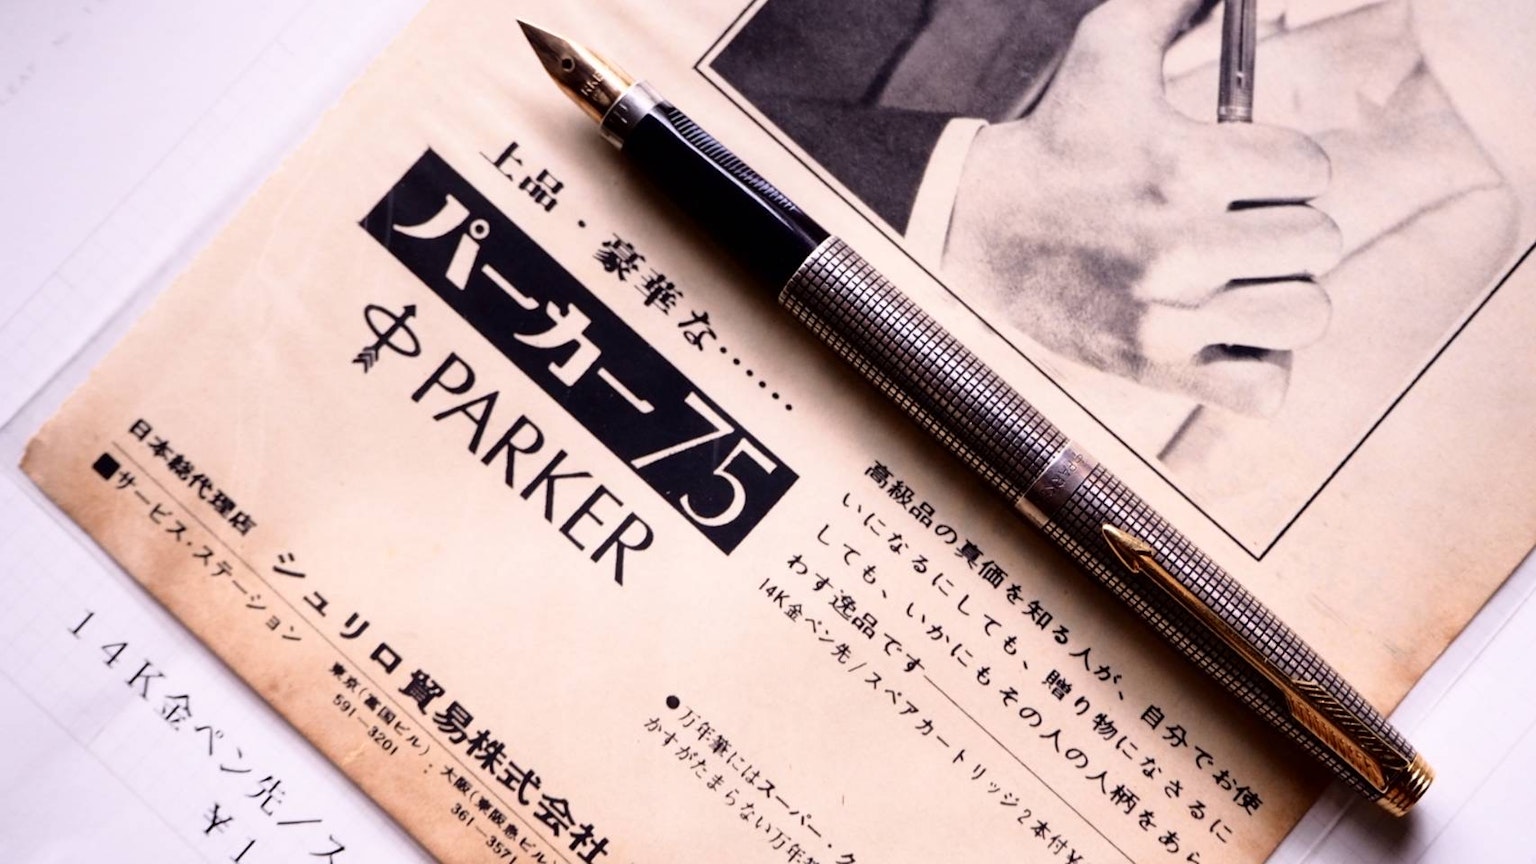 上品・豪華な……
パーカー75
PARKER
高級品の真価を知る人が、自分でお使
いになるにしても、贈り物になさるに
しても、いかにもその人の人柄をあら
わす逸品です
14K金ペン先/スペアカートリッジ2本付¥
●万年筆にはスーパー・ク
かすがたまらない万年筆
日本総代理店 シュリロ貿易株式会社
■サービス・ステーション
東京(富国ビル):大阪(東阪急ビル)
591—3201
361—3571
14K金ペン先/ス
¥1